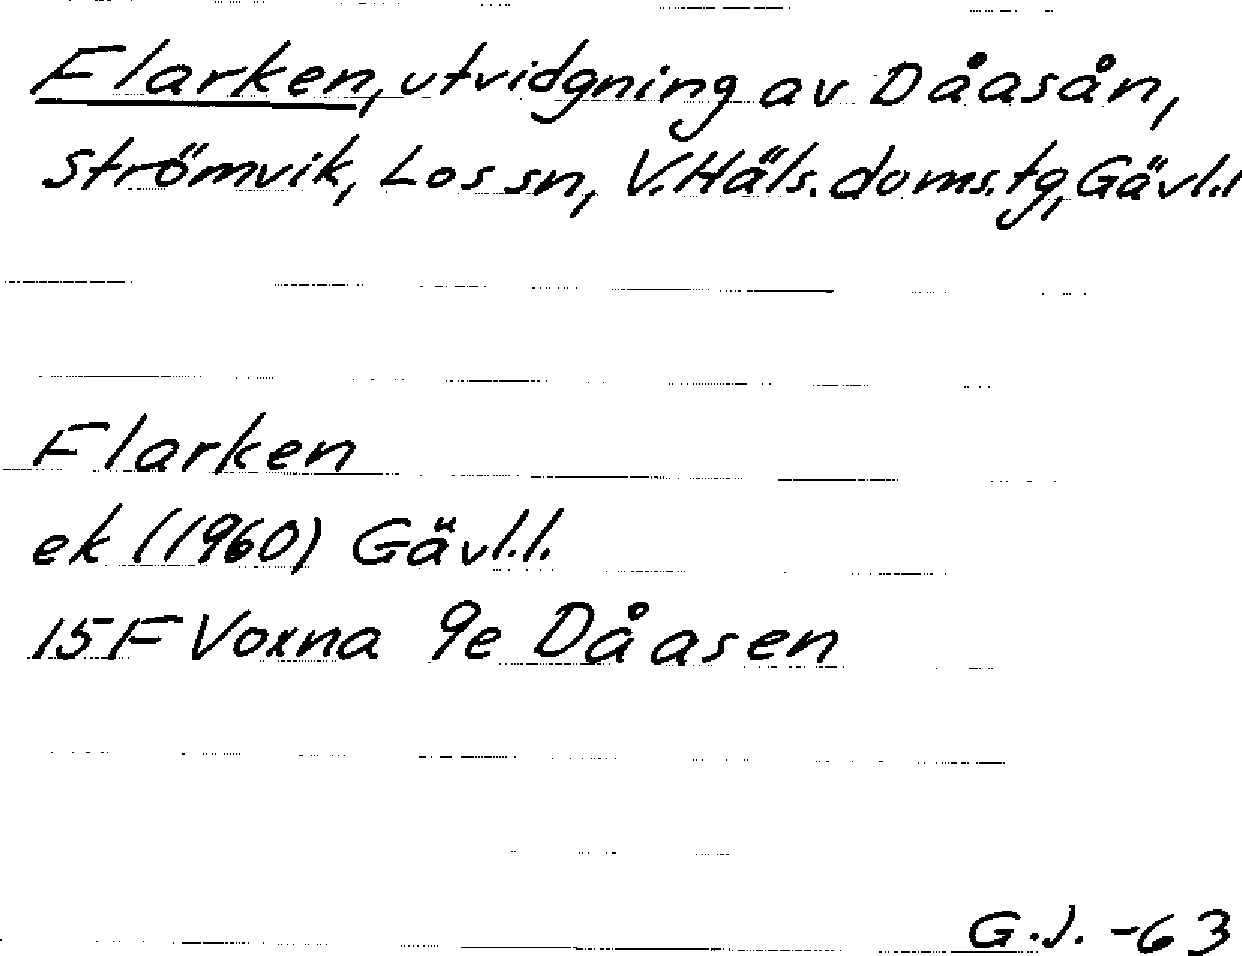 Flarken, utvidgning av Dåasån,
Strömvik, Los sn, V.Häls.doms.tg, Gävl.l
Flarken
ek (1960) Gävl.l.
15F Voxna 9e Dåasen
G.J. -63